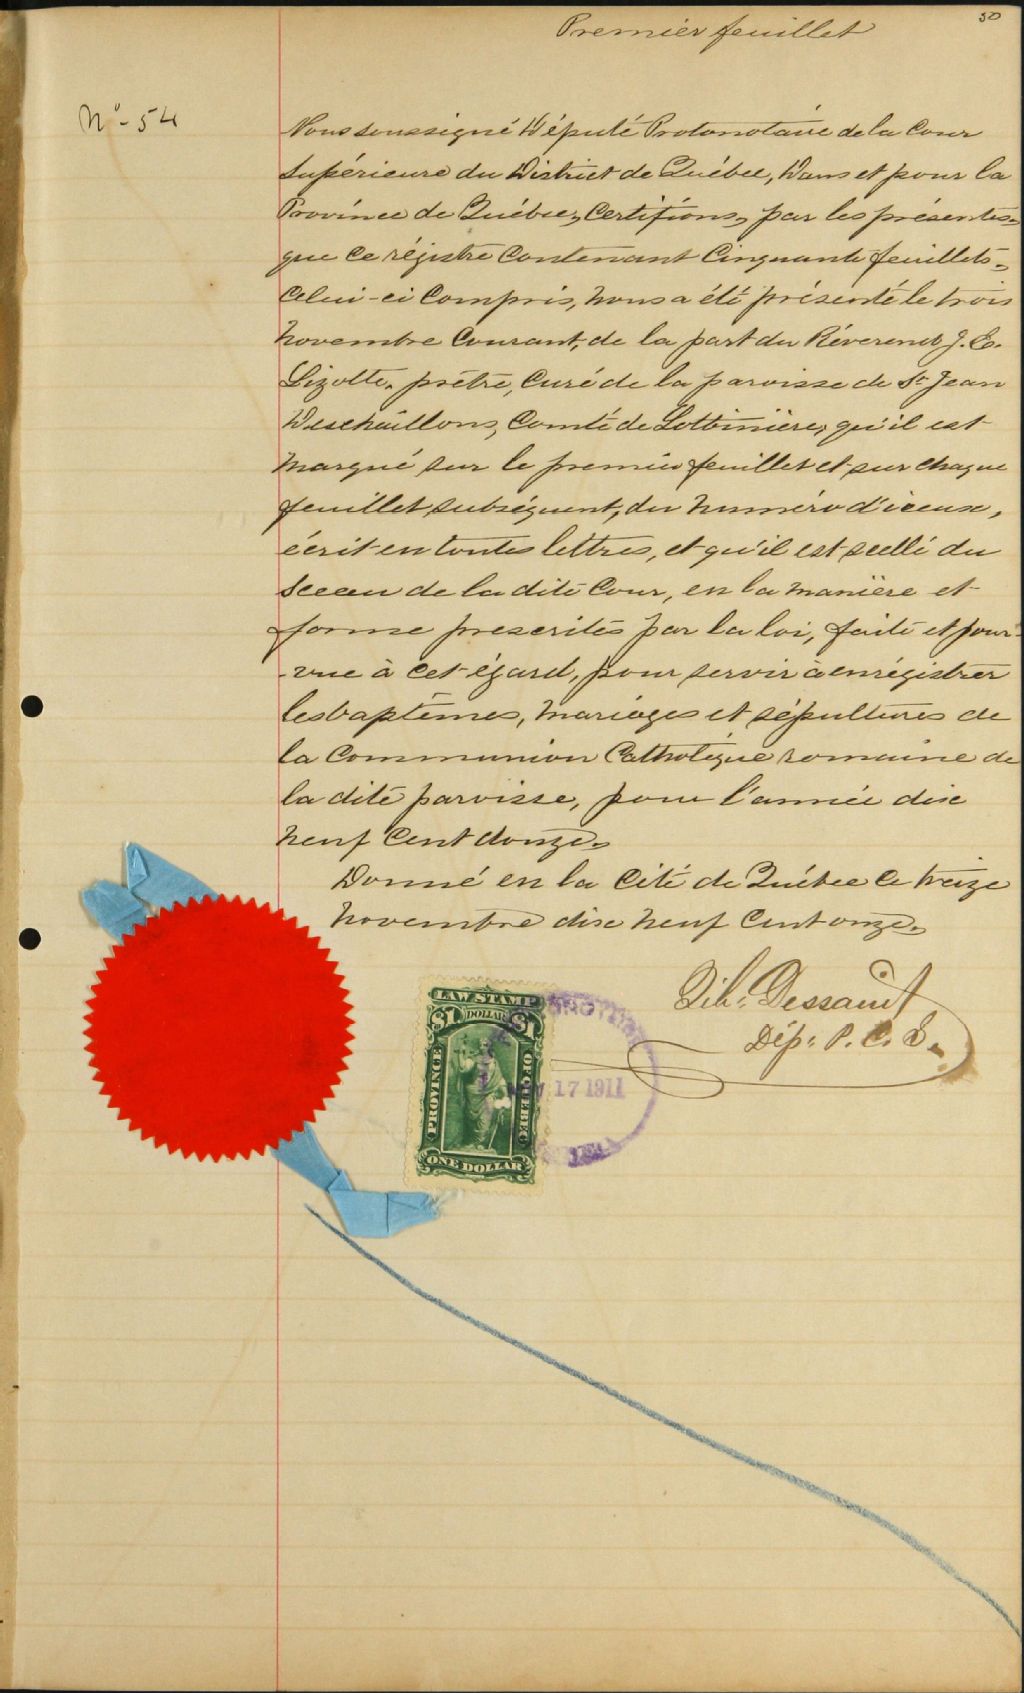 50
Premier feuillet
No - 54
Nous soussigné Député Protonotaire de la Cour
Supérieure du District de Québec, Dans et pour la
Province de Québec, Certifions, par les présentes,
que ce régistre contenant Cinquante feuillets,
celui-ci Compris, nous a été présenté le trois
Novembre Courant, de la part du Réverend J. E.
Lizotte, prêtre, Curé de la paroisse de St Jean
Deschaillons, Comté de Lotbinière, qu'il est
marqué sur le premier feuillet et sur chaque
feuillet subséquent, du numéro d'iceux,
écrit en toutes lettres, et qu'il est scellé du
Sceau de la dite Cour, en la manière et
forme prescrites par la loi, faite et pour-
-vue à cet égard, pour servir à enrégistrer
les baptêmes, mariages et sépultures de
la Communion Catholique romaine de
la dite paroisse, pour l'année dix
neuf Cent douze.
Donné en la Cité de Québec ce treize
Novembre dix neuf Cent onze.
Dessault
Dép. P. C. S.
LAW STAMP
$1 DOLLAR $1
PROVINCE OF QUEBEC
ONE DOLLAR
17 1911